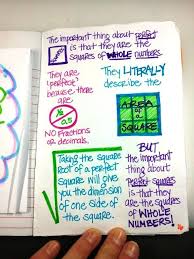 The important thing about perfect
is that they are the
squares of WHOLE numbers.
They are
"perfect"
because there
are
1/2
0.5
NO Fractions
or decimals.
They LITERALLY
describe the
AREA
OF A
SQUARE
Taking the square
root of a perfect
square will give
you the dimension
of one side of
the square.
BUT
the important
thing about
Perfect squares
is they are the
squares
of WHOLE
NUMBERS!